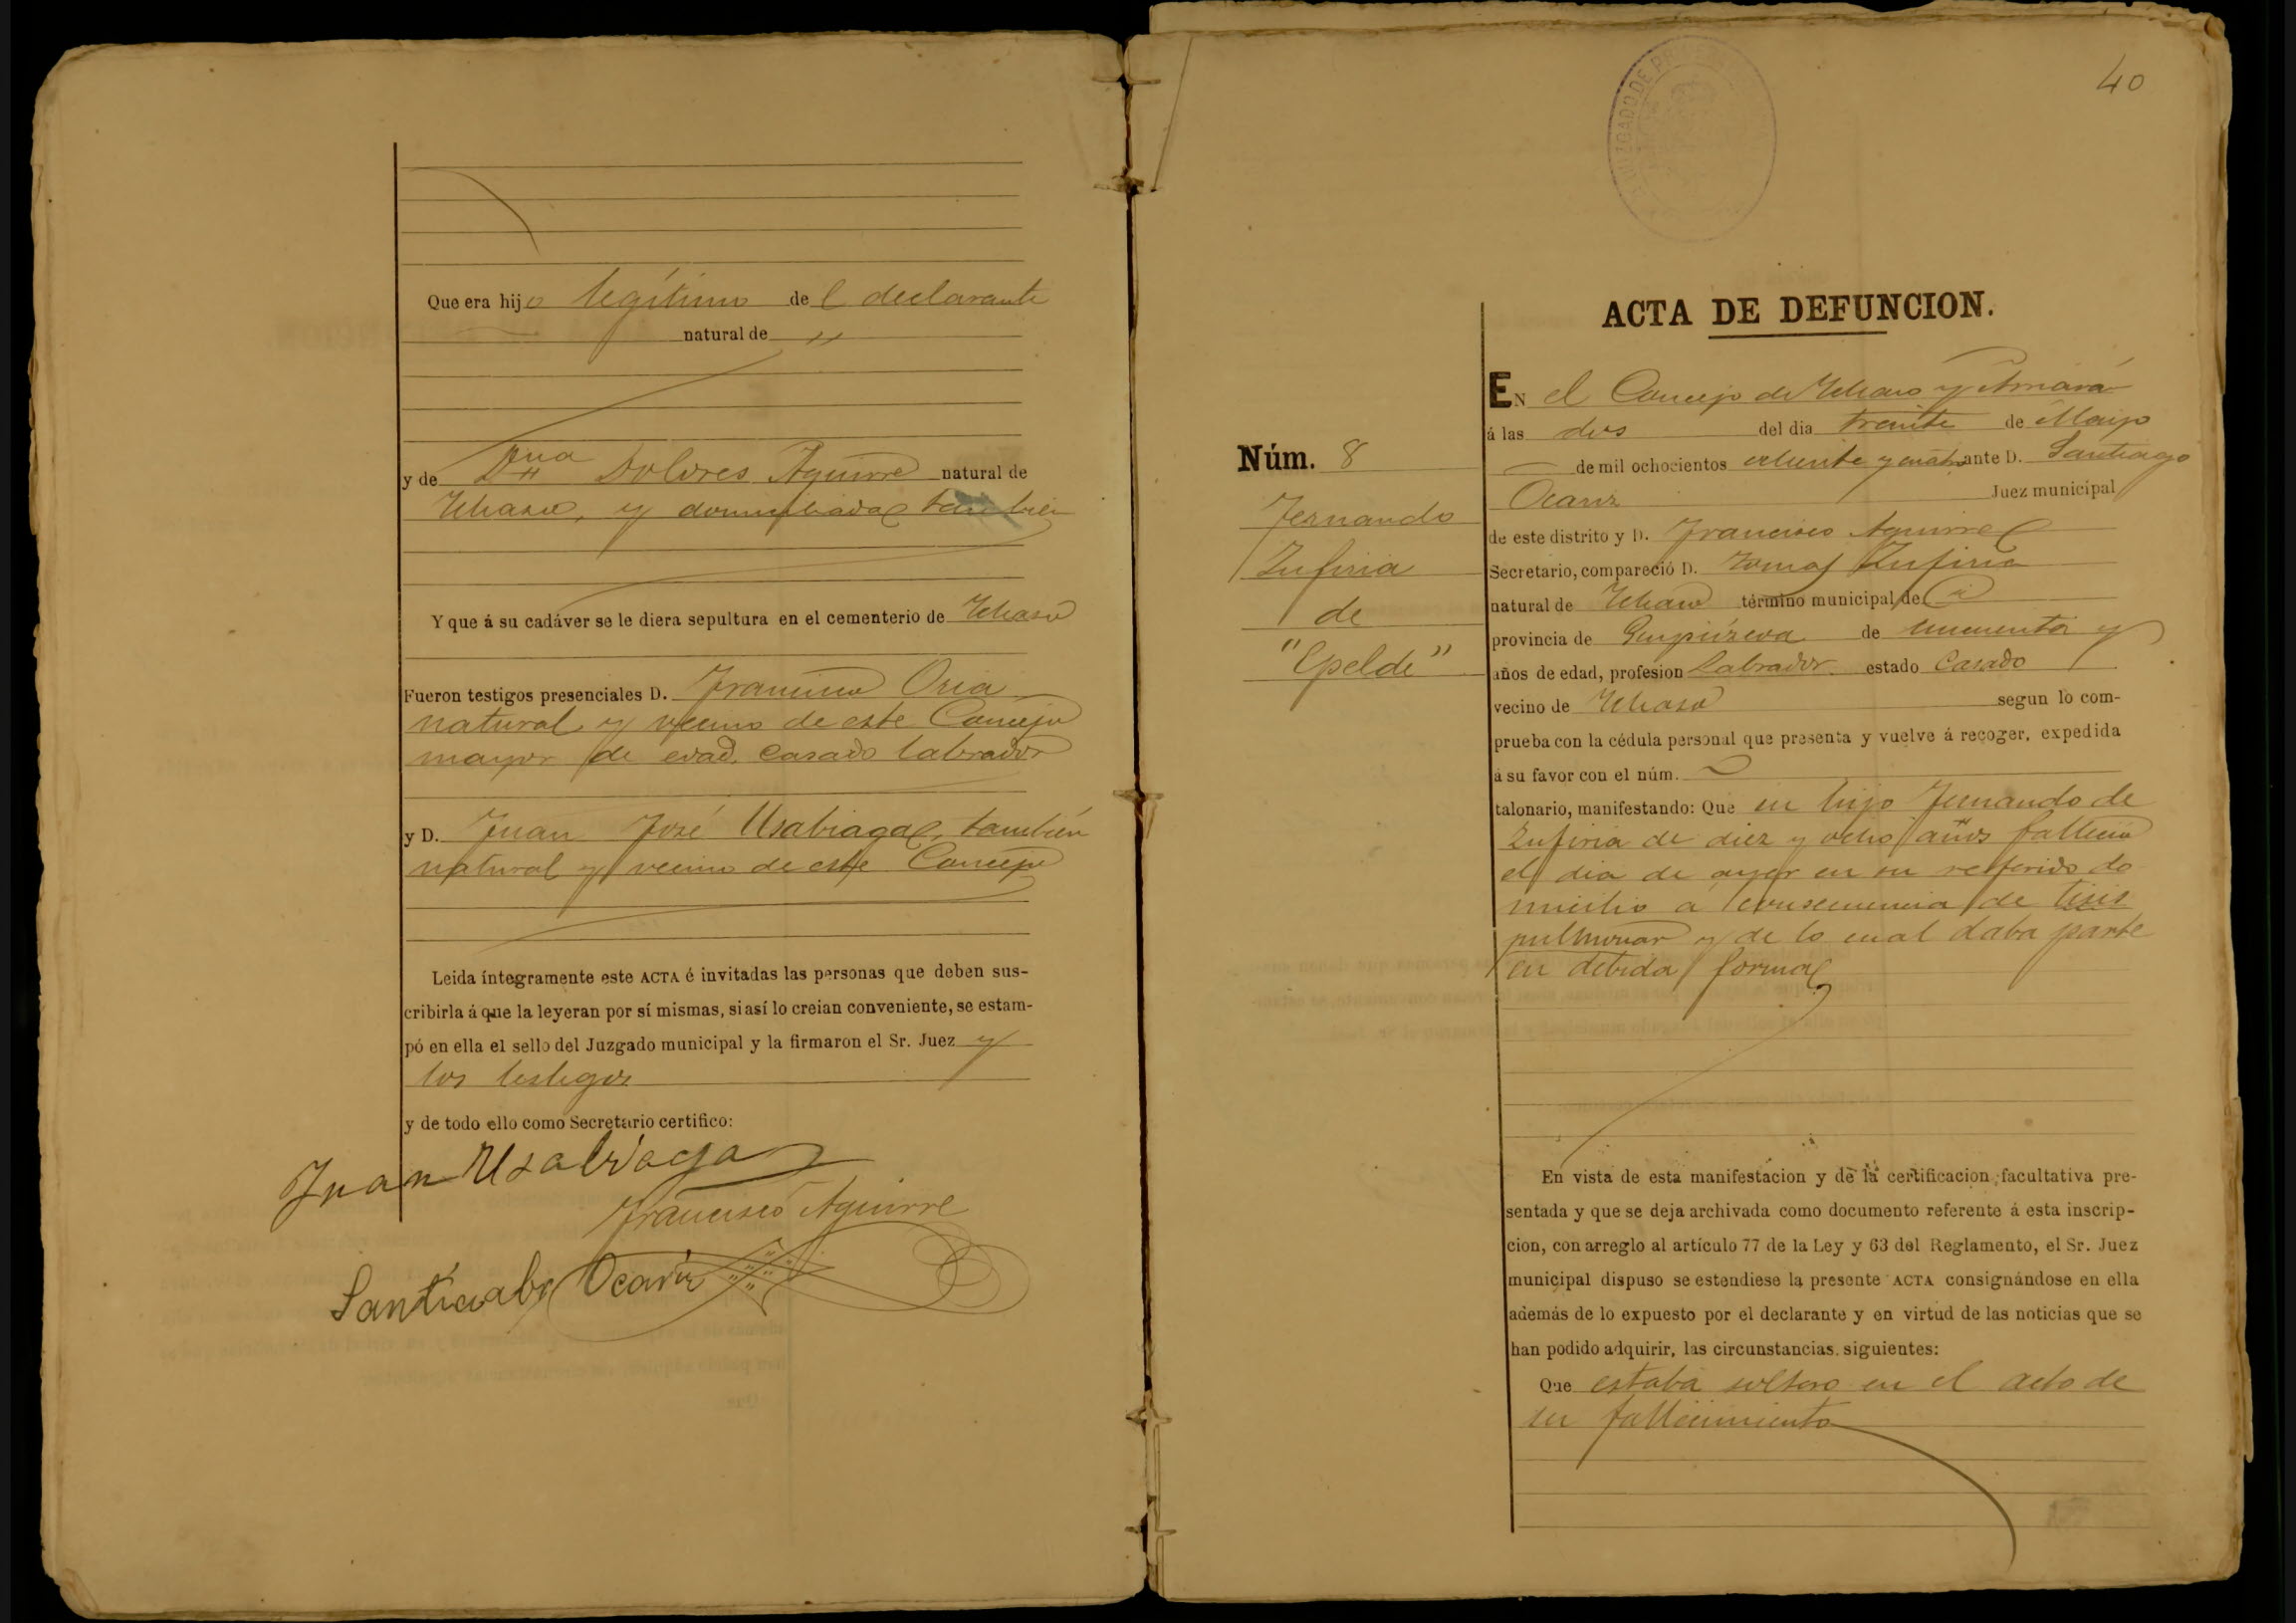 Que era hijo legítimo de l declarante
natural de "
y de Dña Dolores Aguirre natural de
Ichaso, y domiciliada tambien
Y que á su cadáver se le diera sepultura en el cementerio de Ichaso
Fueron testigos presenciales D. Francisco Oria
natural y vecino de este Concejo
mayor de edad, casado labrador
y D. Juan José Usabiaga, también
natural y vecino de este Concejo
Leida íntegramente este ACTA é invitadas las personas que deben sus-
cribirla á que la leyeran por sí mismas, si así lo creian conveniente, se estam-
pó en ella el sello del Juzgado municipal y la firmaron el Sr. Juez y
los testigos
y de todo ello como Secretario certifico:
Juan Usabiaga
Francisco Aguirre
Ocariz
40
JUZGADO DE
ACTA DE DEFUNCION.
Núm. 8
Fernando
Zufiria
de
"Epelde"
EN el Concejo de Ichaso y Arriará
á las dos del dia treinta de Mayo
de mil ochocientos ochenta y cuatro ante D. Santiago
Ocariz Juez municipal
de este distrito y D. Francisco Aguirre
Secretario, compareció D. Tomas Zufiria
natural de Ichaso término municipal de
provincia de Guipúzcoa de cincuenta y
años de edad, profesion Labrador estado Casado
vecino de Ichaso segun lo com-
prueba con la cédula personal que presenta y vuelve á recoger, expedida
á su favor con el núm.
talonario, manifestando: Que su hijo Fernando de
Zufiria de diez y ocho años falleció
el dia de ayer en su referido do
micilio a consecuencia de tisis
pulmonar y de lo cual daba parte
en debida forma
En vista de esta manifestacion y de la certificacion facultativa pre-
sentada y que se deja archivada como documento referente á esta inscrip-
cion, con arreglo al artículo 77 de la Ley y 63 del Reglamento, el Sr. Juez
municipal dispuso se estendiese la presente ACTA consignándose en ella
además de lo expuesto por el declarante y en virtud de las noticias que se
han podido adquirir, las circunstancias siguientes:
Que estaba soltero en el acto de
su fallecimiento